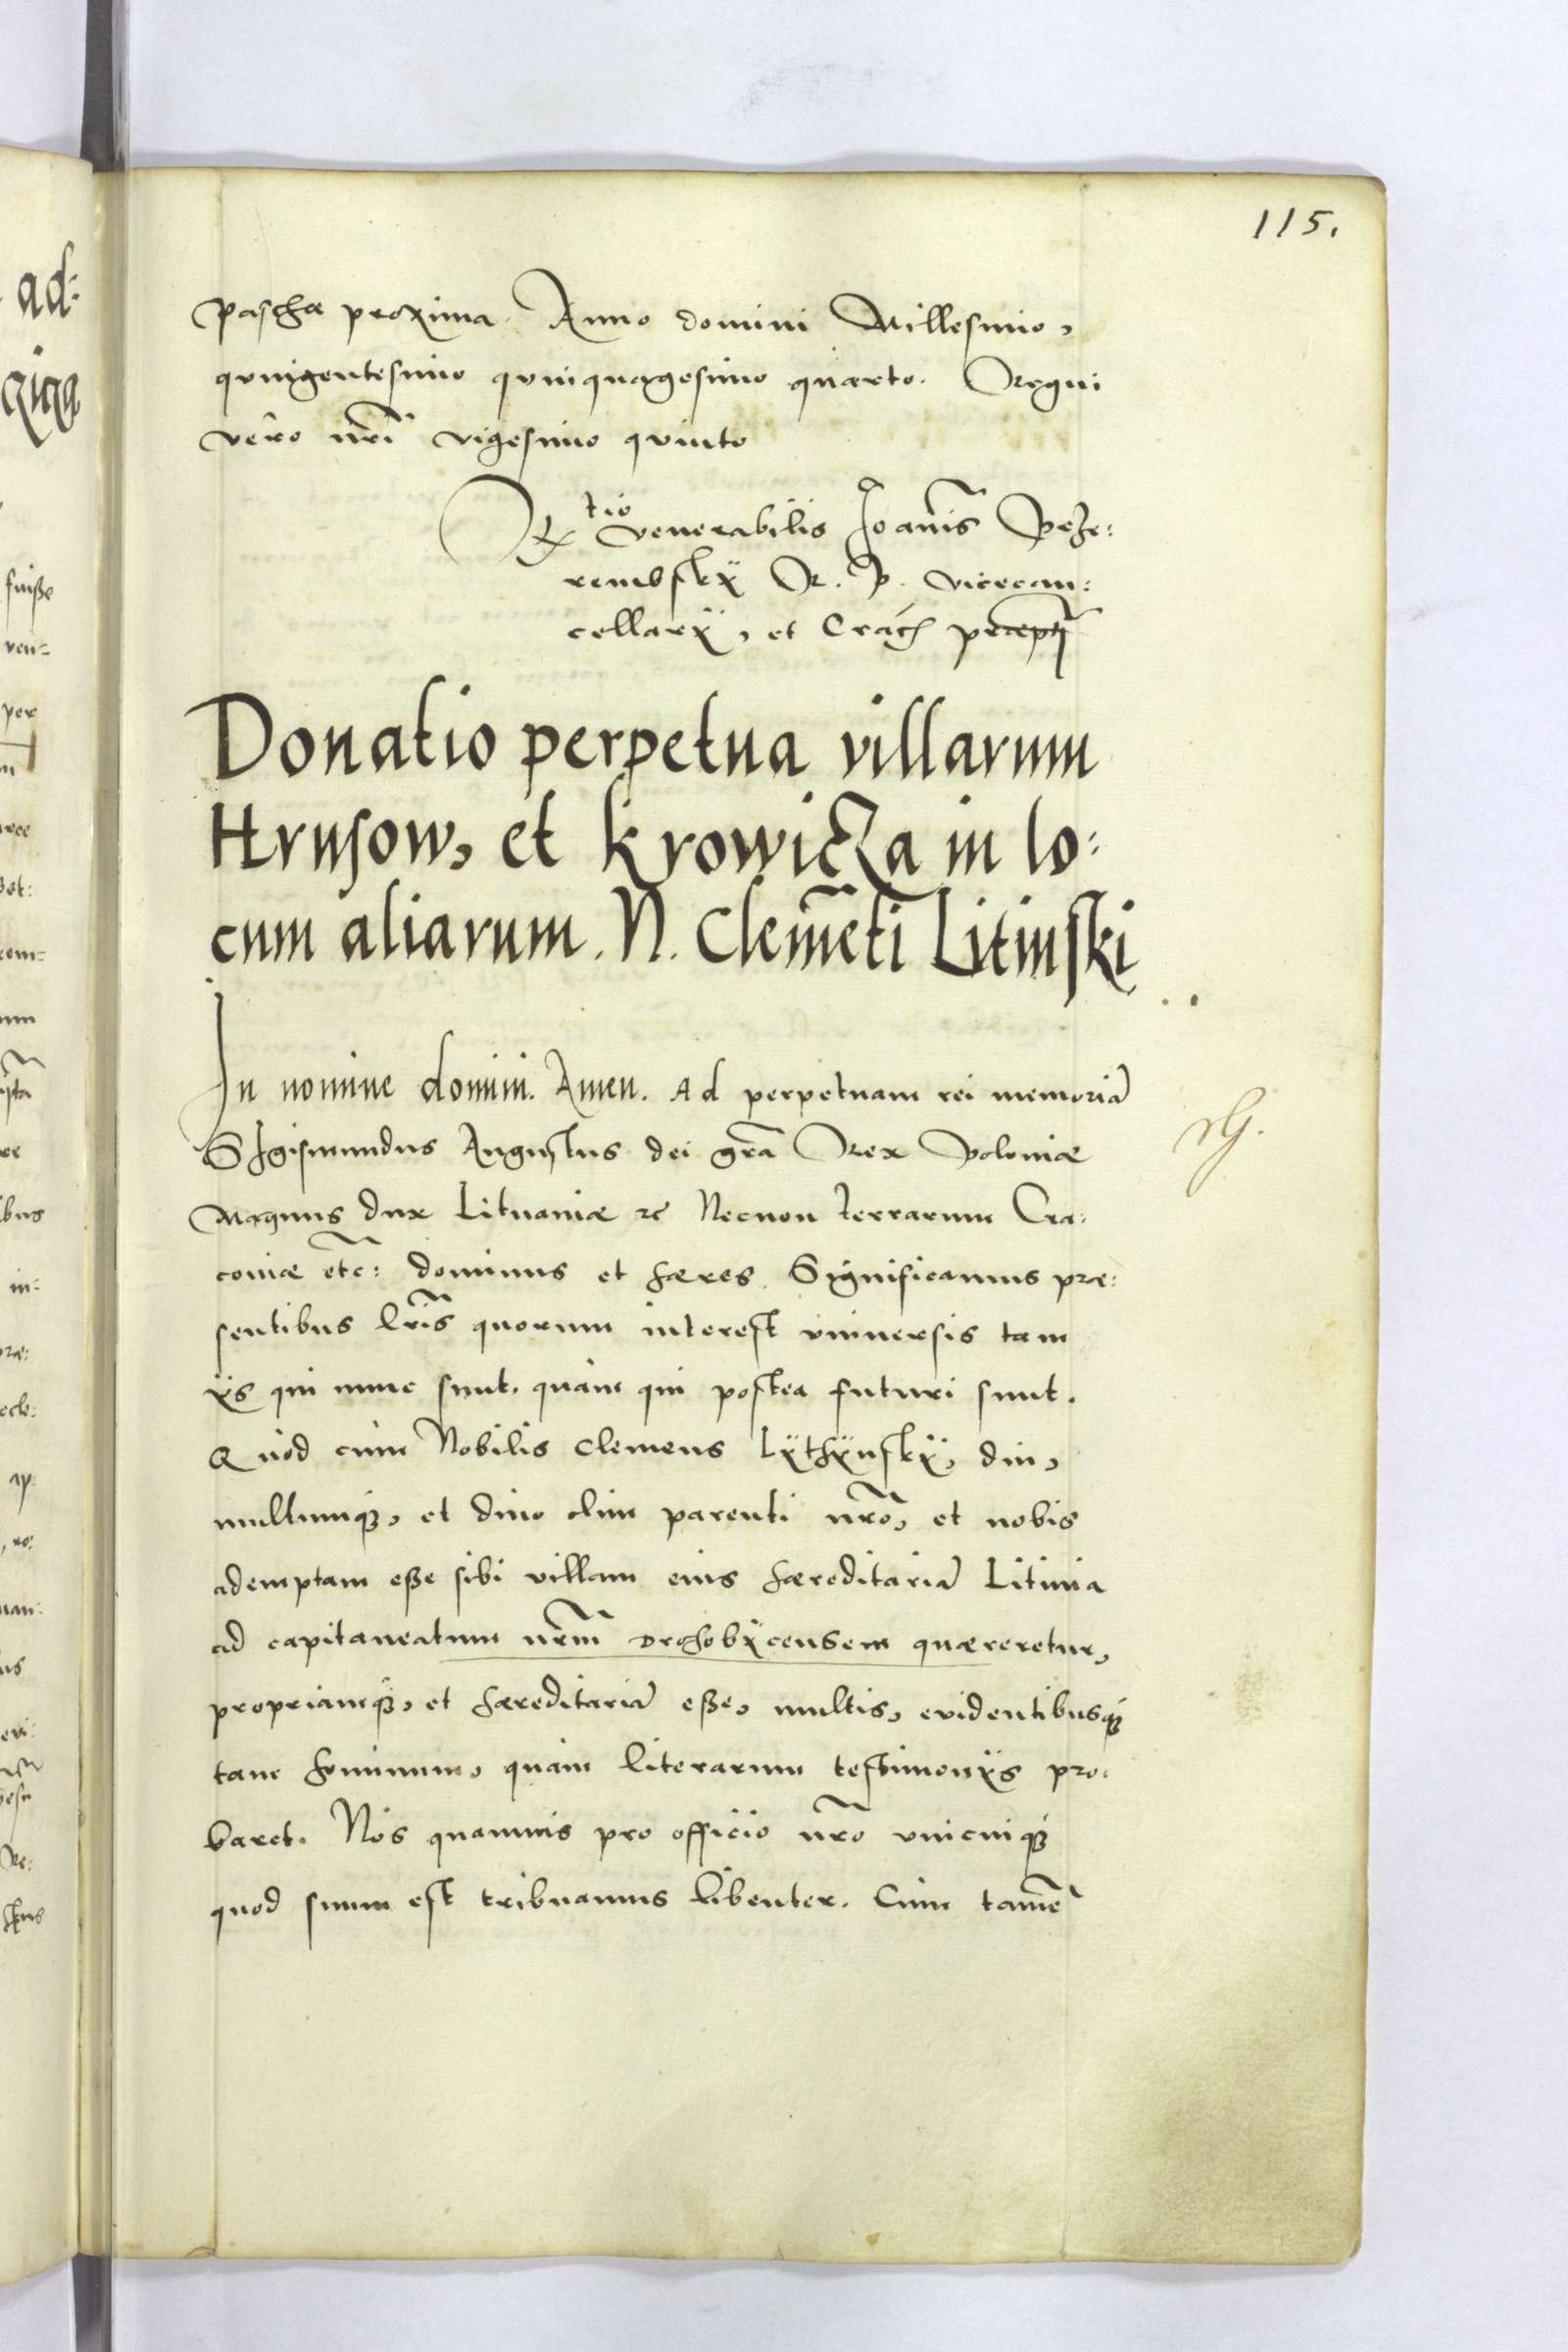 115.
Pascha proxima. Anno domini Millesimo,
quingentesimo quinquagesimo quarto. Regni
vero nri vigesimo quinto
Rtio venerabilis Joanis Prze:
rembskÿ R. P. vicecan:
cellarÿ, et Crach praeptj
Donatio perpetua villarum
Hrusow, et KrowicZa in lo:
cum aliarum. N. Clemeti Litinski
In nomine domini. Amen. Ad perpetuam rei memoria
SIgismundus Augustus dei gra Rex Poloniæ
Magnus dux Lituaniæ zc Necnon terrarum Cra:
coviæ etc: dominus et hæres. Significamus præ:
sentibus lris quorum interest universis tam
ÿs qui nunc sunt, quàm qui postea futuri sunt.
Quòd cùm Nobilis Clemens Lÿthÿnskÿ, diu,
multumq3, et divo olim parenti nro, et nobis
ademptam esse sibi villam eius hæreditaria Litinia
ad capitaneatum nrm Drohobÿcensem quæreretur,
propriamq3, et hæreditaria esse, multis, evidentibusq3
tam hominum, quàm literarum testimonÿs pro:
baret. Nos quamvis pro officio nro unicuiq3
quod suum est tribuamus libenter. Cùm tame
ad:
fuisse
ven:
per
in: